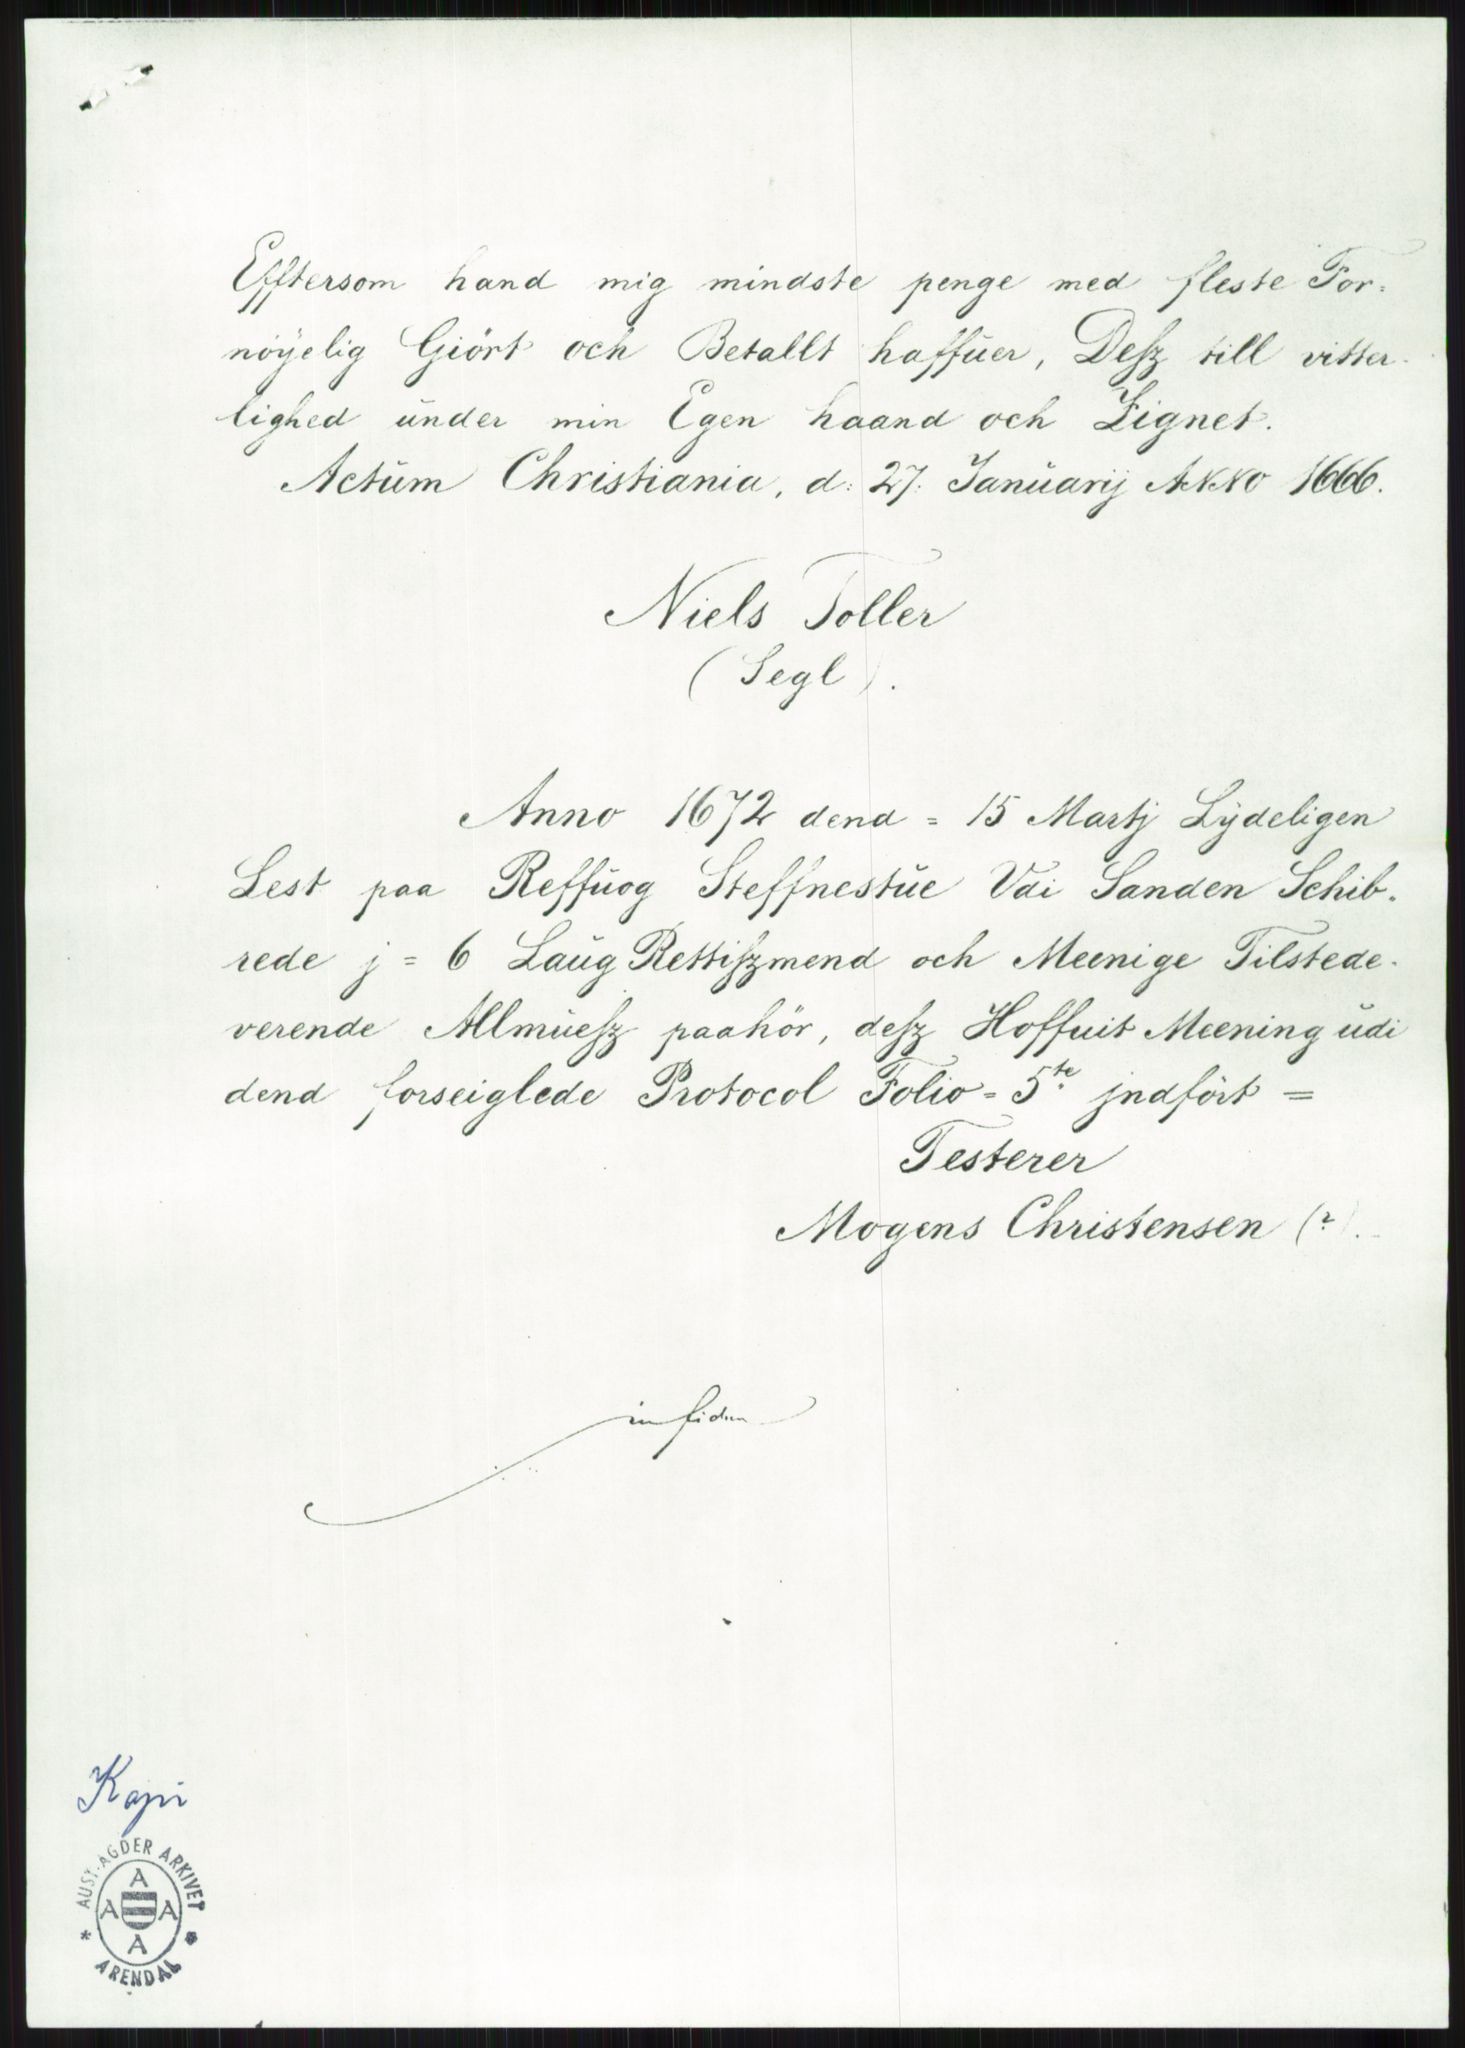 Efftersom hand mig mindste penge med fleste For-
nöÿelig Giört och Betallt haffŭer, Desz till vitter-
lighed ŭnder min Egen haand och Zignet.
Actŭm Christiania, d: 27. Janŭarij ANNO 1666.
Niels Toller
(Segl).
Anno 1672 dend = 15 Martj Lÿdeligen
Lest paa Reffŭog Steffnestŭe Vdi Sanden Schib-
rede j = 6 Laŭg Rettiszmend och Meenige Tilstede-
verende Allmŭesz paahör, desz Hoffuit Meening ŭdi
dend forseiglede Protocol Folio = 5te jndfört =
Testerer
Mogens Christensen (?).
in fidem
Kopi
AUST-AGDER ARKIVET
A
A A
A
* *
ARENDAL